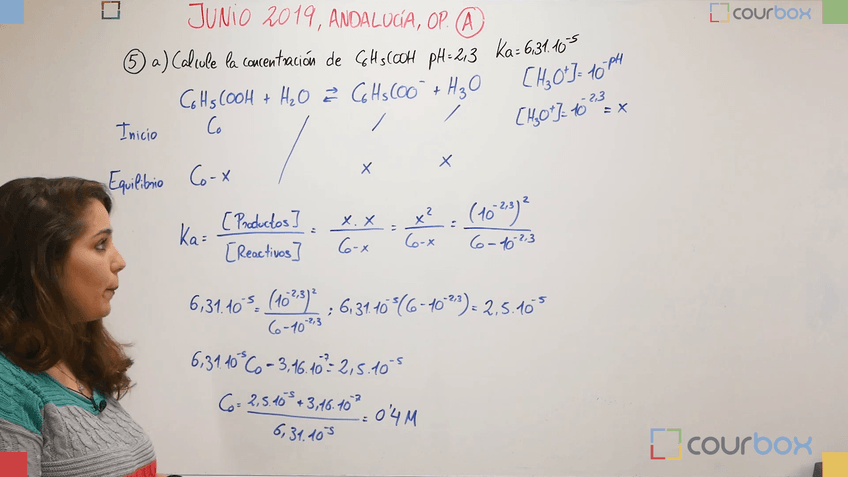 JUNIO 2019, ANDALUCÍA, OP. A
courbox
5 a) Calcule la concentración de C6H5COOH pH=2,3 Ka=6,31.10^-5
C6H5COOH + H2O ⇄ C6H5COO^- + H3O
[H3O^+]=10^-pH
Inicio C0 / / /
[H3O^+]=10^-2,3 = x
Equilibrio C0-x x x
Ka= [Productos]/[Reactivos] = x.x/C0-x = x^2/C0-x = (10^-2,3)^2/C0-10^-2,3
6,31.10^-5= (10^-2,3)^2/C0-10^-2,3 ; 6,31.10^-5(C0-10^-2,3)= 2,5.10^-5
6,31.10^-5C0 - 3,16.10^-7= 2,5.10^-5
C0= 2,5.10^-5+3,16.10^-7/6,31.10^-5 = 0'4 M
courbox